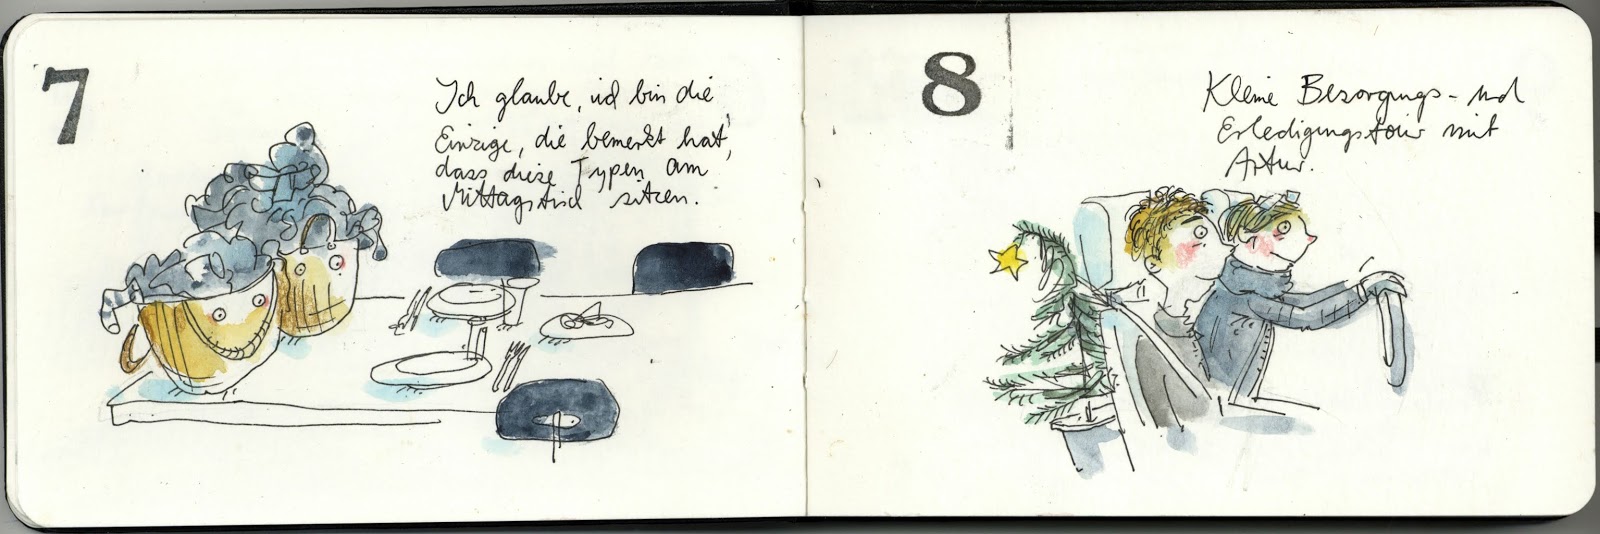 7
Ich glaube, ich bin die
Einzige, die bemerkt hat,
dass diese Typen am
Mittagstisch sitzen.
8
Kleine Besorgungs- und
Erledigungstour mit
Artur.